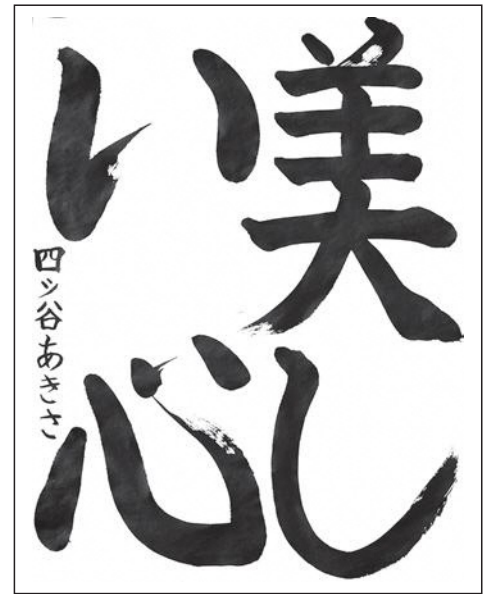 美し
い心
四ッ谷あきさ